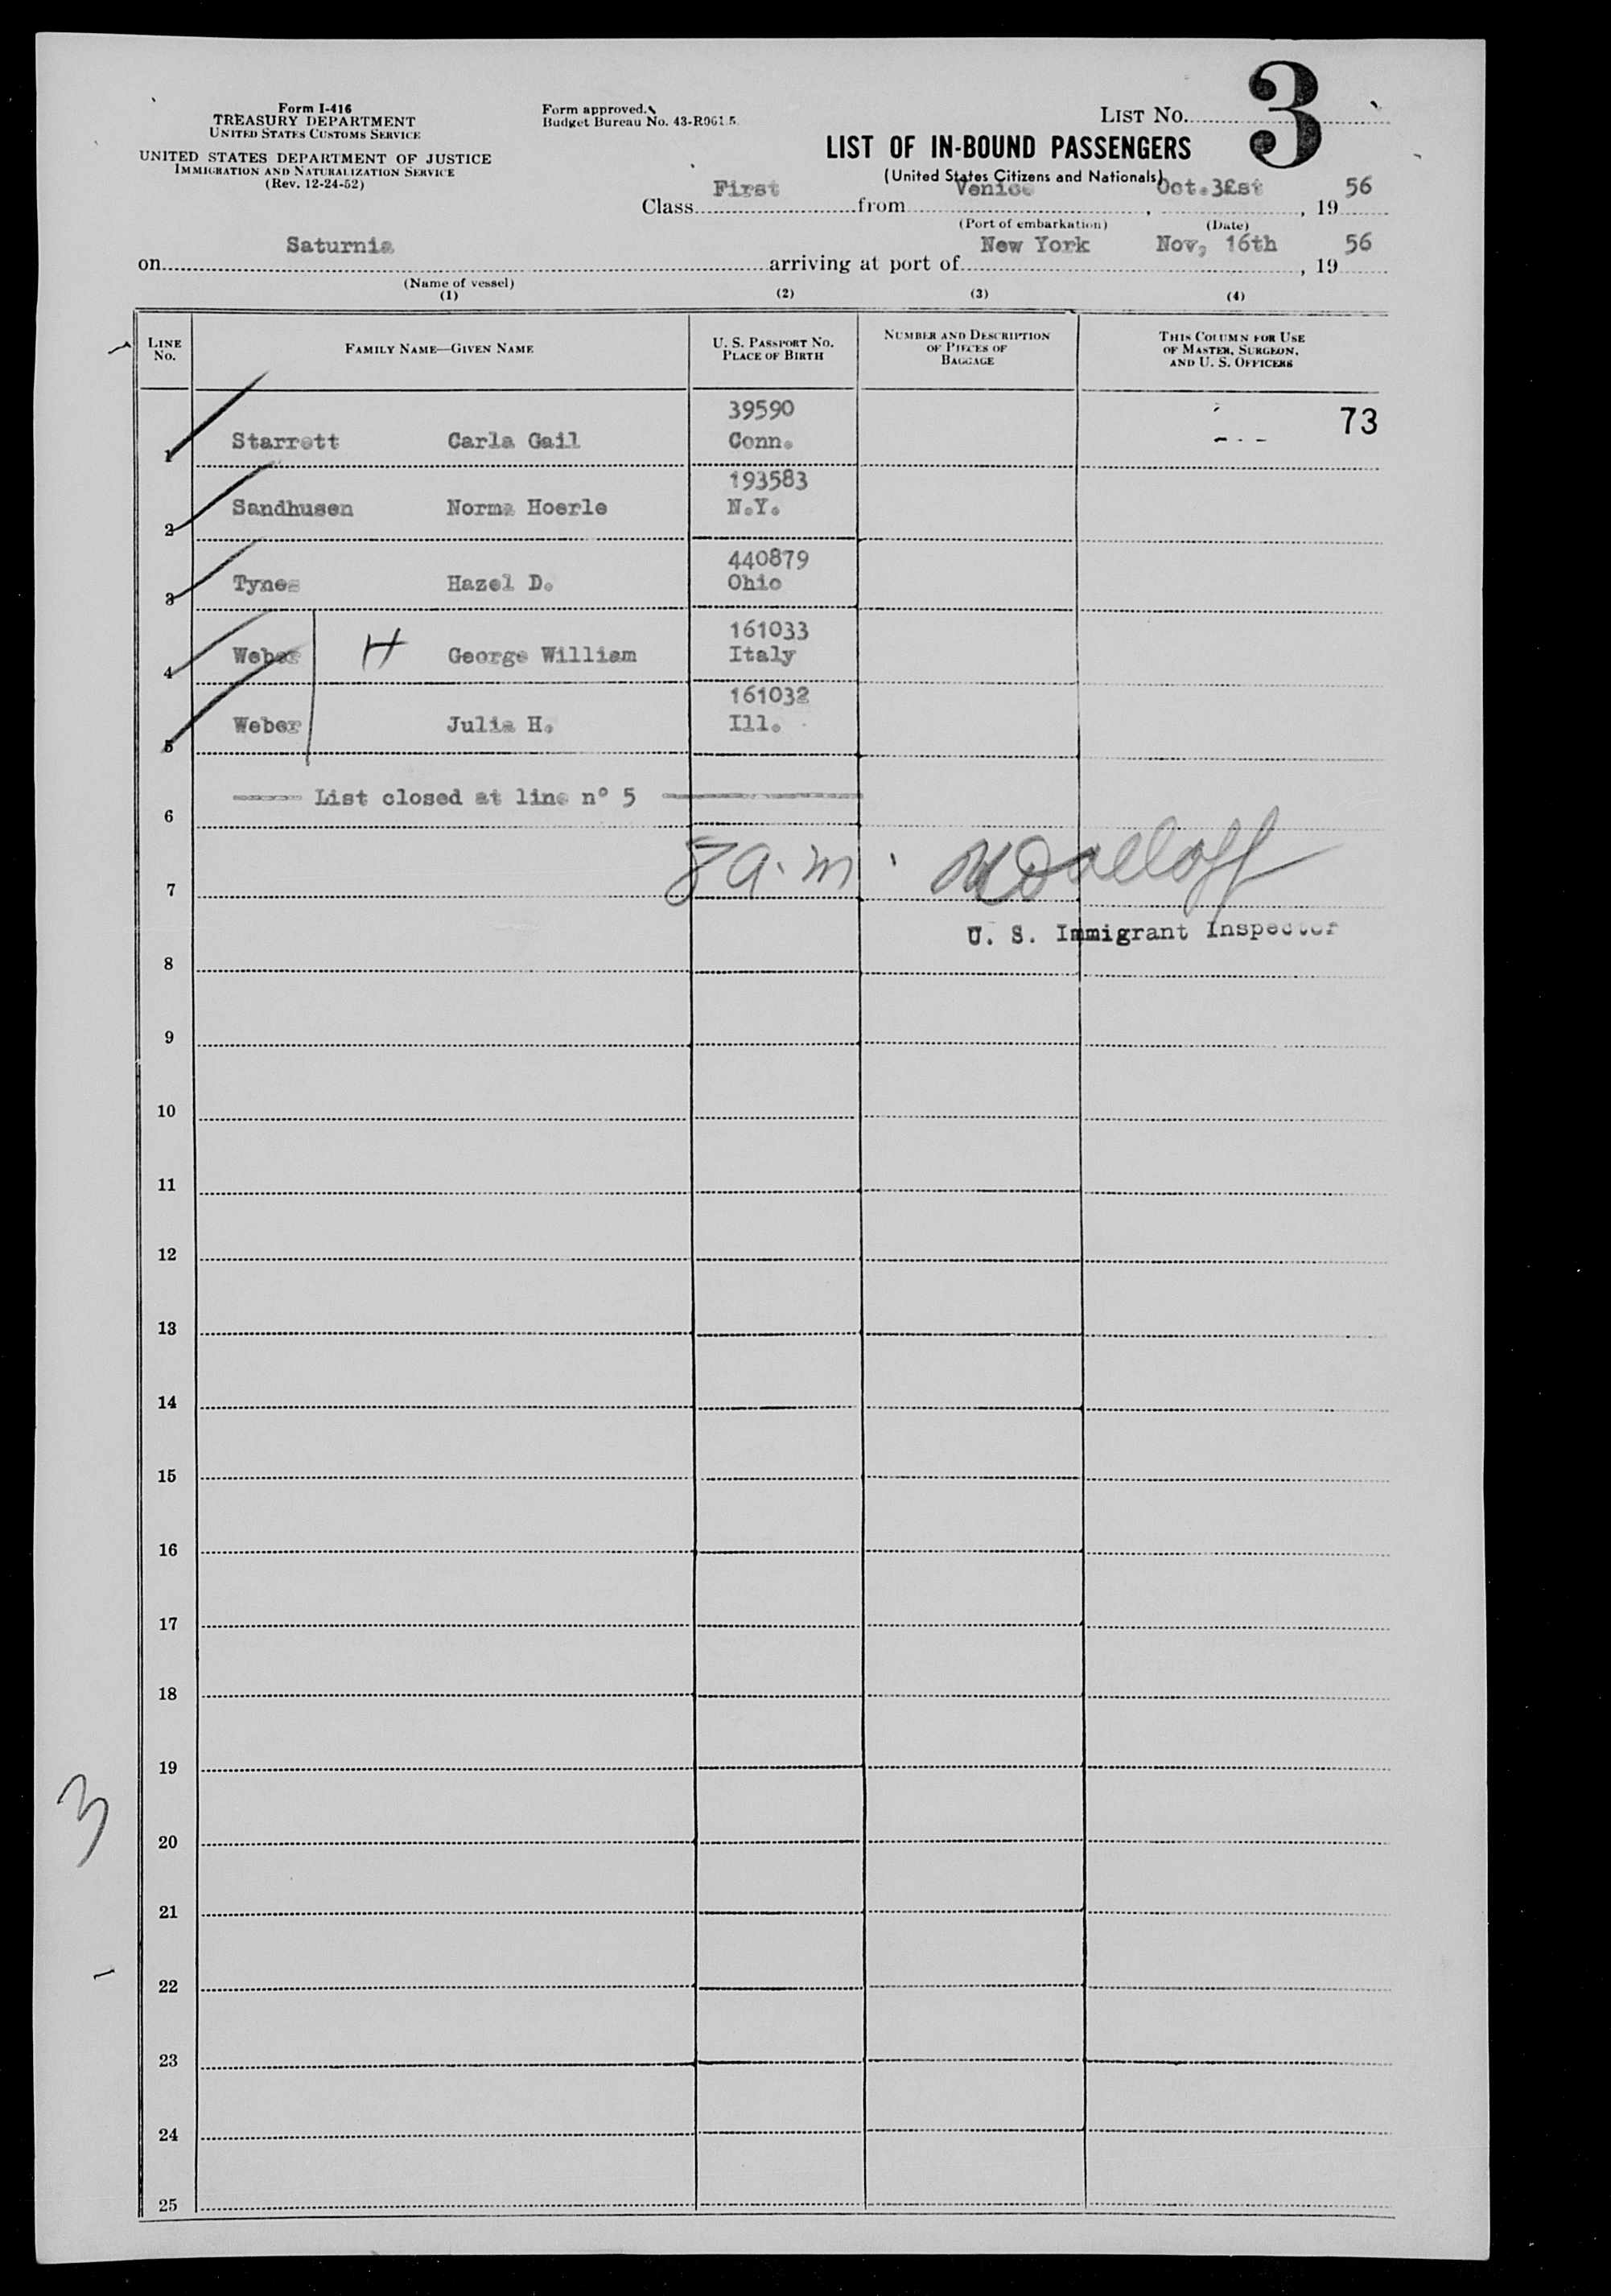 Form I-416
TREASURY DEPARTMENT
UNITED STATES CUSTOMS SERVICE
UNITED STATES DEPARTMENT OF JUSTICE
IMMIGRATION AND NATURALIZATION SERVICE
(Rev. 12-24-52)
Form approved.
Budget Bureau No. 43-R061.5.
LIST NO. 3
LIST OF IN-BOUND PASSENGERS
(United States Citizens and Nationals)
Class First from Venice, Oct. 31st, 19 56
(Port of embarkation) (Date)
on Saturnia arriving at port of New York Nov, 16th, 19 56
(Name of vessel)
(1) (2) (3) (4)
LINE No. FAMILY NAME—GIVEN NAME U. S. PASSPORT NO. PLACE OF BIRTH NUMBER AND DESCRIPTION OF PIECES OF BAGGAGE THIS COLUMN FOR USE OF MASTER, SURGEON, AND U. S. OFFICERS
39590 73
1 Starrett Carla Gail Conn.
193583
2 Sandhusen Norma Hoerle N.Y.
440879
3 Tynes Hazel D. Ohio
161033
4 Weber H George William Italy
161032
5 Weber Julia H. Ill.
List closed at line nº 5
6
8 a.m.
7
U. S. Immigrant Inspector
8
9
10
11
12
13
14
15
16
17
18
19
3
20
21
22
23
24
25